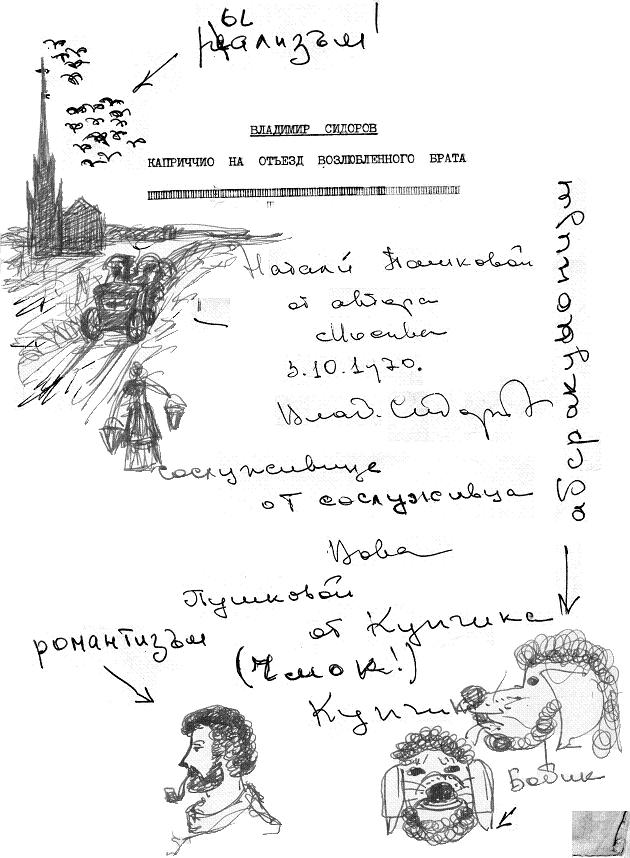 ы
реализъм!
ВЛАДИМИР СИДОРОВ
КАПРИЧЧИО НА ОТЪЕЗД ВОЗЛЮБЛЕННОГО БРАТА
от автора
Москва
5.10.1970.
Влад. Сидоров
сослуживице
от сослуживца
Вова
Пушковой
от Купчика
(Чмок!)
Купчик
романтизъм
абсракционизм
Бобик